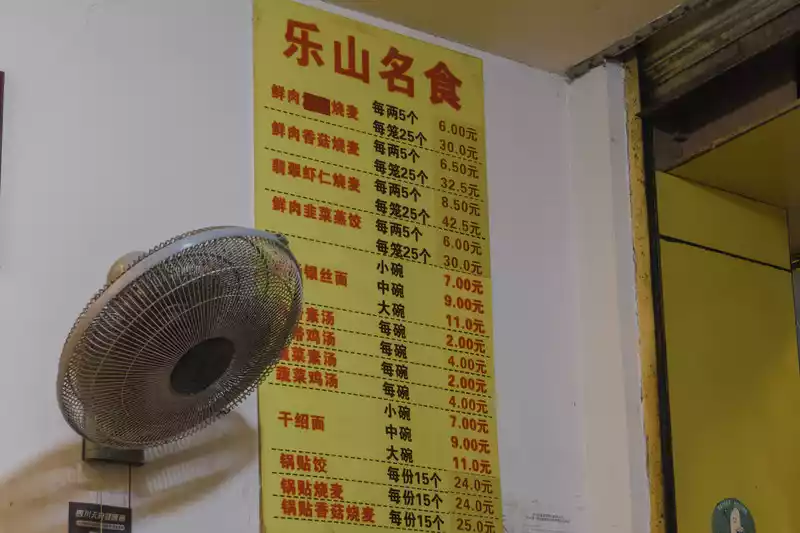 乐山名食
鲜肉 烧麦 每两5个 6.00元
每笼25个 30.0元
鲜肉香菇烧麦 每两5个 6.50元
每笼25个 32.5元
翡翠虾仁烧麦 每两5个 8.50元
每笼25个 42.5元
鲜肉韭菜蒸饺 每两5个 6.00元
每笼25个 30.0元
银丝面 小碗 7.00元
中碗 9.00元
大碗 11.0元
素汤 每碗 2.00元
鸡汤 每碗 4.00元
菜素汤 每碗 2.00元
蔬菜鸡汤 每碗 4.00元
干绍面 小碗 7.00元
中碗 9.00元
大碗 11.0元
锅贴饺 每份15个 24.0元
锅贴烧麦 每份15个 24.0元
锅贴香菇烧麦 每份15个 25.0元